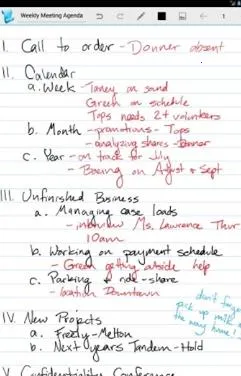 Weekly Meeting Agenda
I. Call to order - Donner absent
II. Calendar
a. Week - Taney on sound
Green on schedule
Tops needs 2+ volunteers
b. Month - promotions - Tops
- analyzing shares - Donner
c. Year - on track for July
- Boeing on August & Sept
III. Unfinished Business
a. Managing case loads
- interview Ms. Lawrence Thur
10am
b. Working on payment schedule
- Green getting outside help
c. Parking & ride-share
- location Downtown
don't forget
pick up milk
the way home!
IV. New Projects
a. Freedy - Melton
b. Next years Tandem - Hold
V. Confidentiality Conference